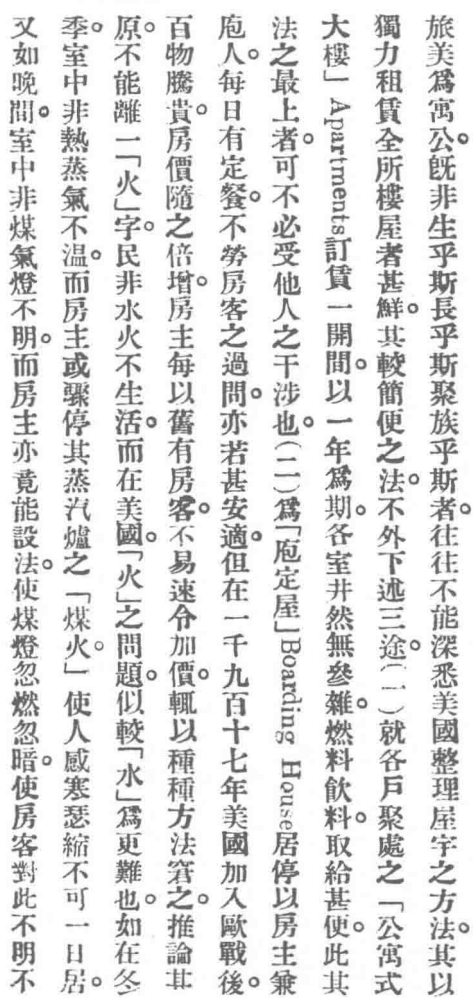 旅美爲寓公。旣非生乎斯長乎斯聚族乎斯者。往往不能深悉美國整理屋宇之方法。其以
獨力租賃全所樓屋者甚鮮。其較簡便之法。不外下述三途。(一)就各戶聚處之「公寓式
大樓」Apartments訂賃一開間。以一年爲期。各室井然無參雜。燃料飲料。取給甚便。此其
法之最上者。可不必受他人之干涉也。(二)爲「庖定屋」Boarding House居停以房主兼
庖人。每日有定餐。不勞房客之過問。亦若甚安適。但在一千九百十七年美國加入歐戰後。
百物騰貴。房價隨之倍增。房主每以舊有房客。不易速令加價。輒以種種方法窘之。推論其
原。不能離一「火」字。民非水火不生活。而在美國。「火」之問題。似較「水」爲更難也。如在冬
季。室中非熱蒸氣不溫。而房主或驟停其蒸汽爐之「煤火」。使人感寒瑟縮不可一日居。
又如晚間。室中非煤氣燈不明。而房主亦竟能設法。使煤燈忽燃忽暗。使房客對此不明不